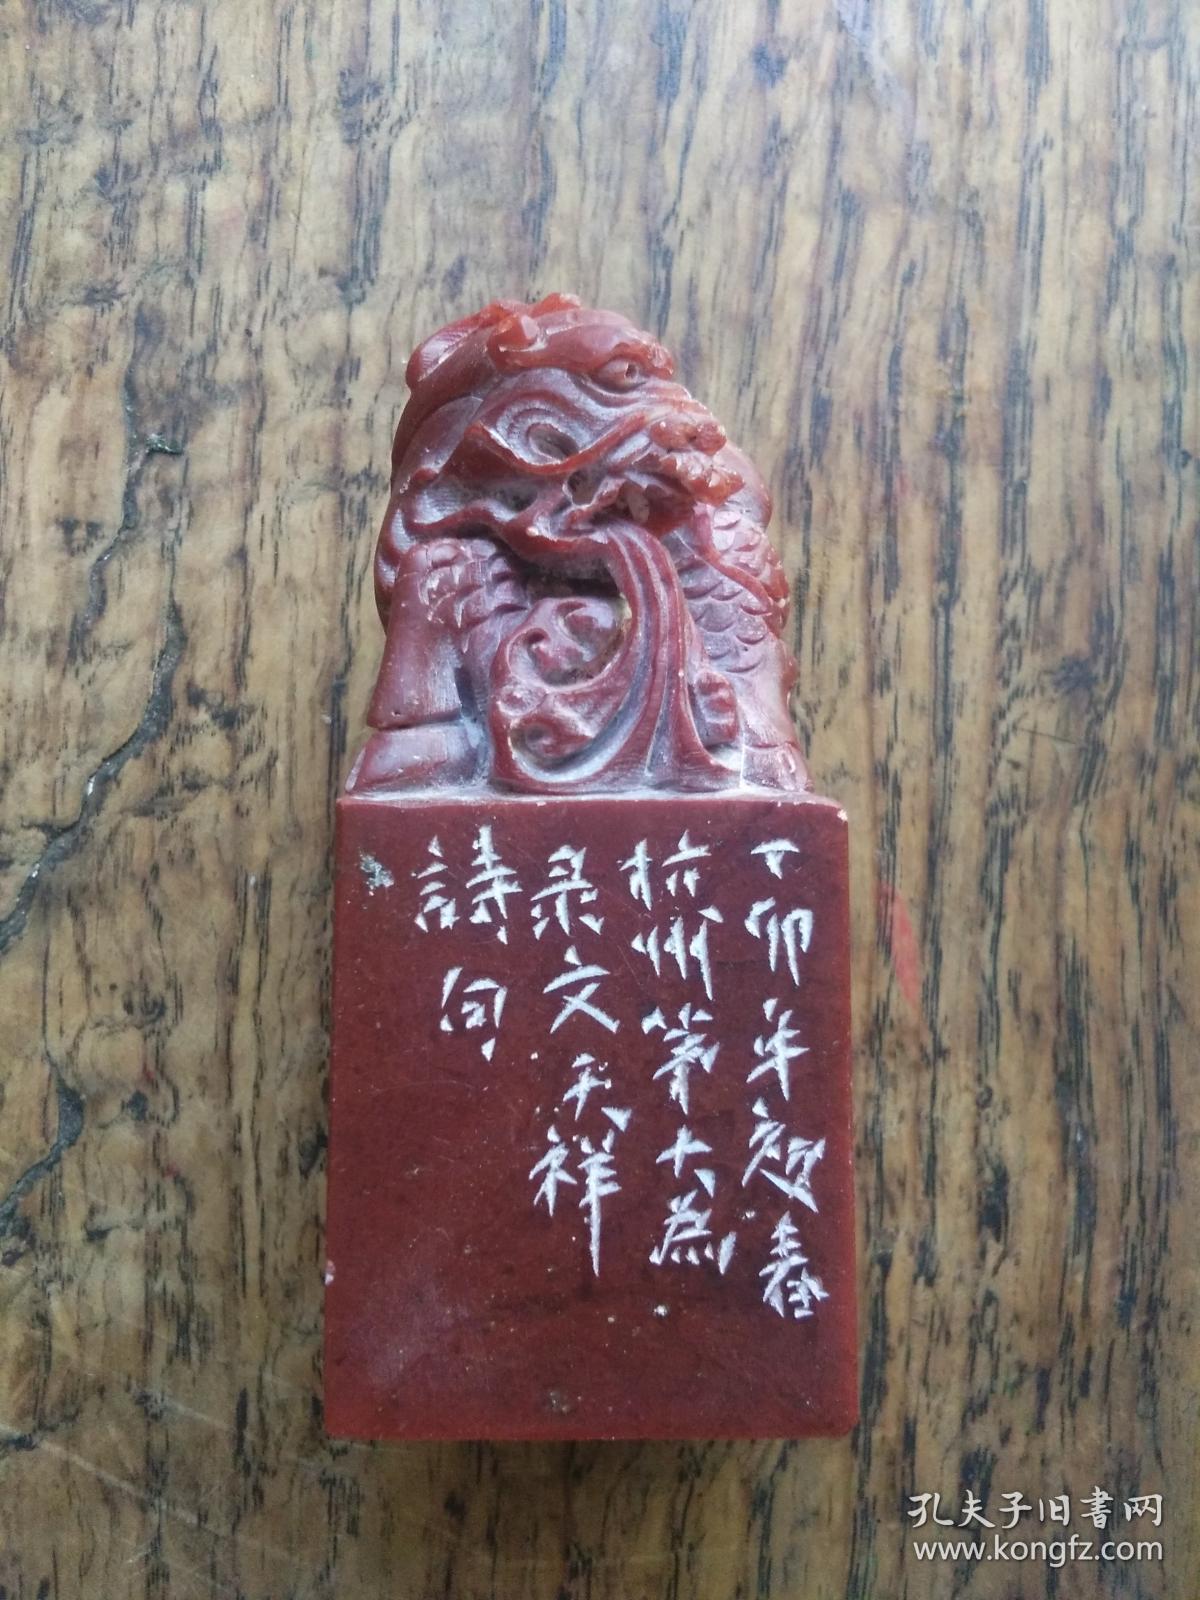 丁卯年
杭州第大為
录文天祥
詩句
孔夫子旧書网
www.kongfz.com